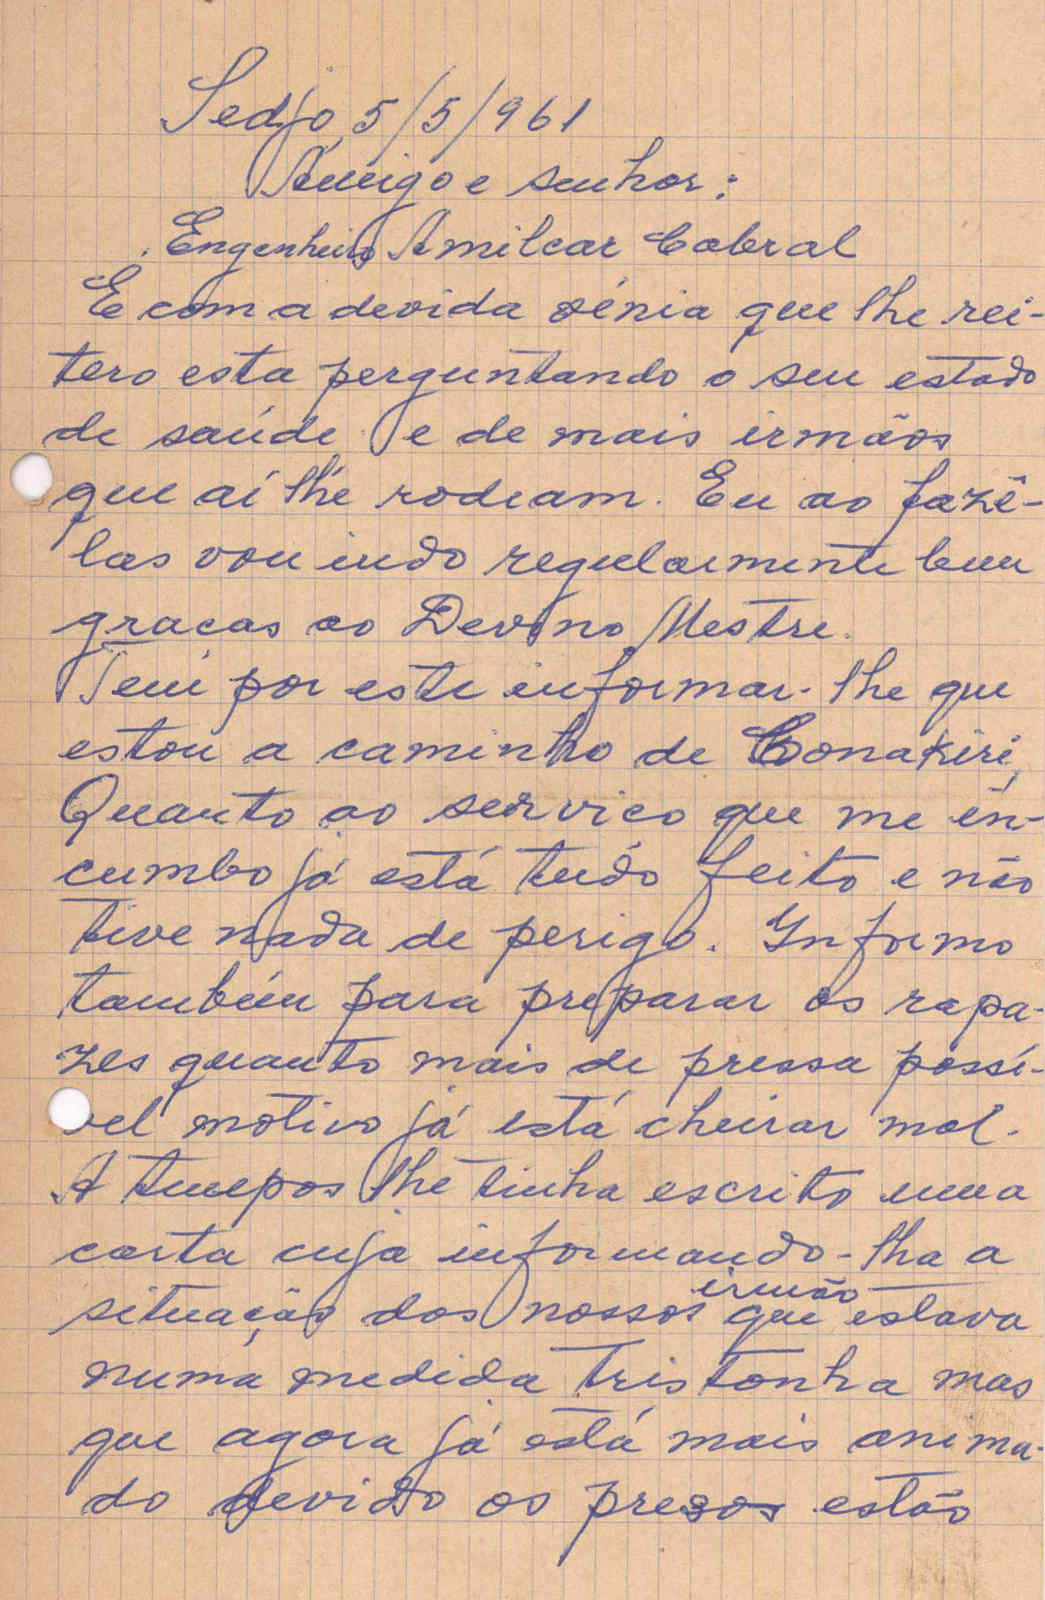 Sedjo, 5/5/961
Amigo e senhor:
Engenheiro Amilcar Cabral
E com a devida vénia que lhe rei-
tero esta perguntando o seu estado
de saúde e de mais irmãos
que aí lhe rodeam. Eu ao fazê-
las vou indo regularmente bem
gracas ao Devino Mestre.
Tem por este informar-lhe que
estou a caminho de Conakiri,
Quanto ao servico que me en-
cumbo já está tudo feito e não
tive nada de perigo. Informo
também para preparar os rapa-
zes quanto mais de pressa possí-
vel motivo já está cheirar mal.
A tempos lhe tinha escrito uma
carta cuja informando-lha a
situação dos nossos irmão que estava
numa medida tristonha mas
que agora já está mais anima-
do devido os presos estão